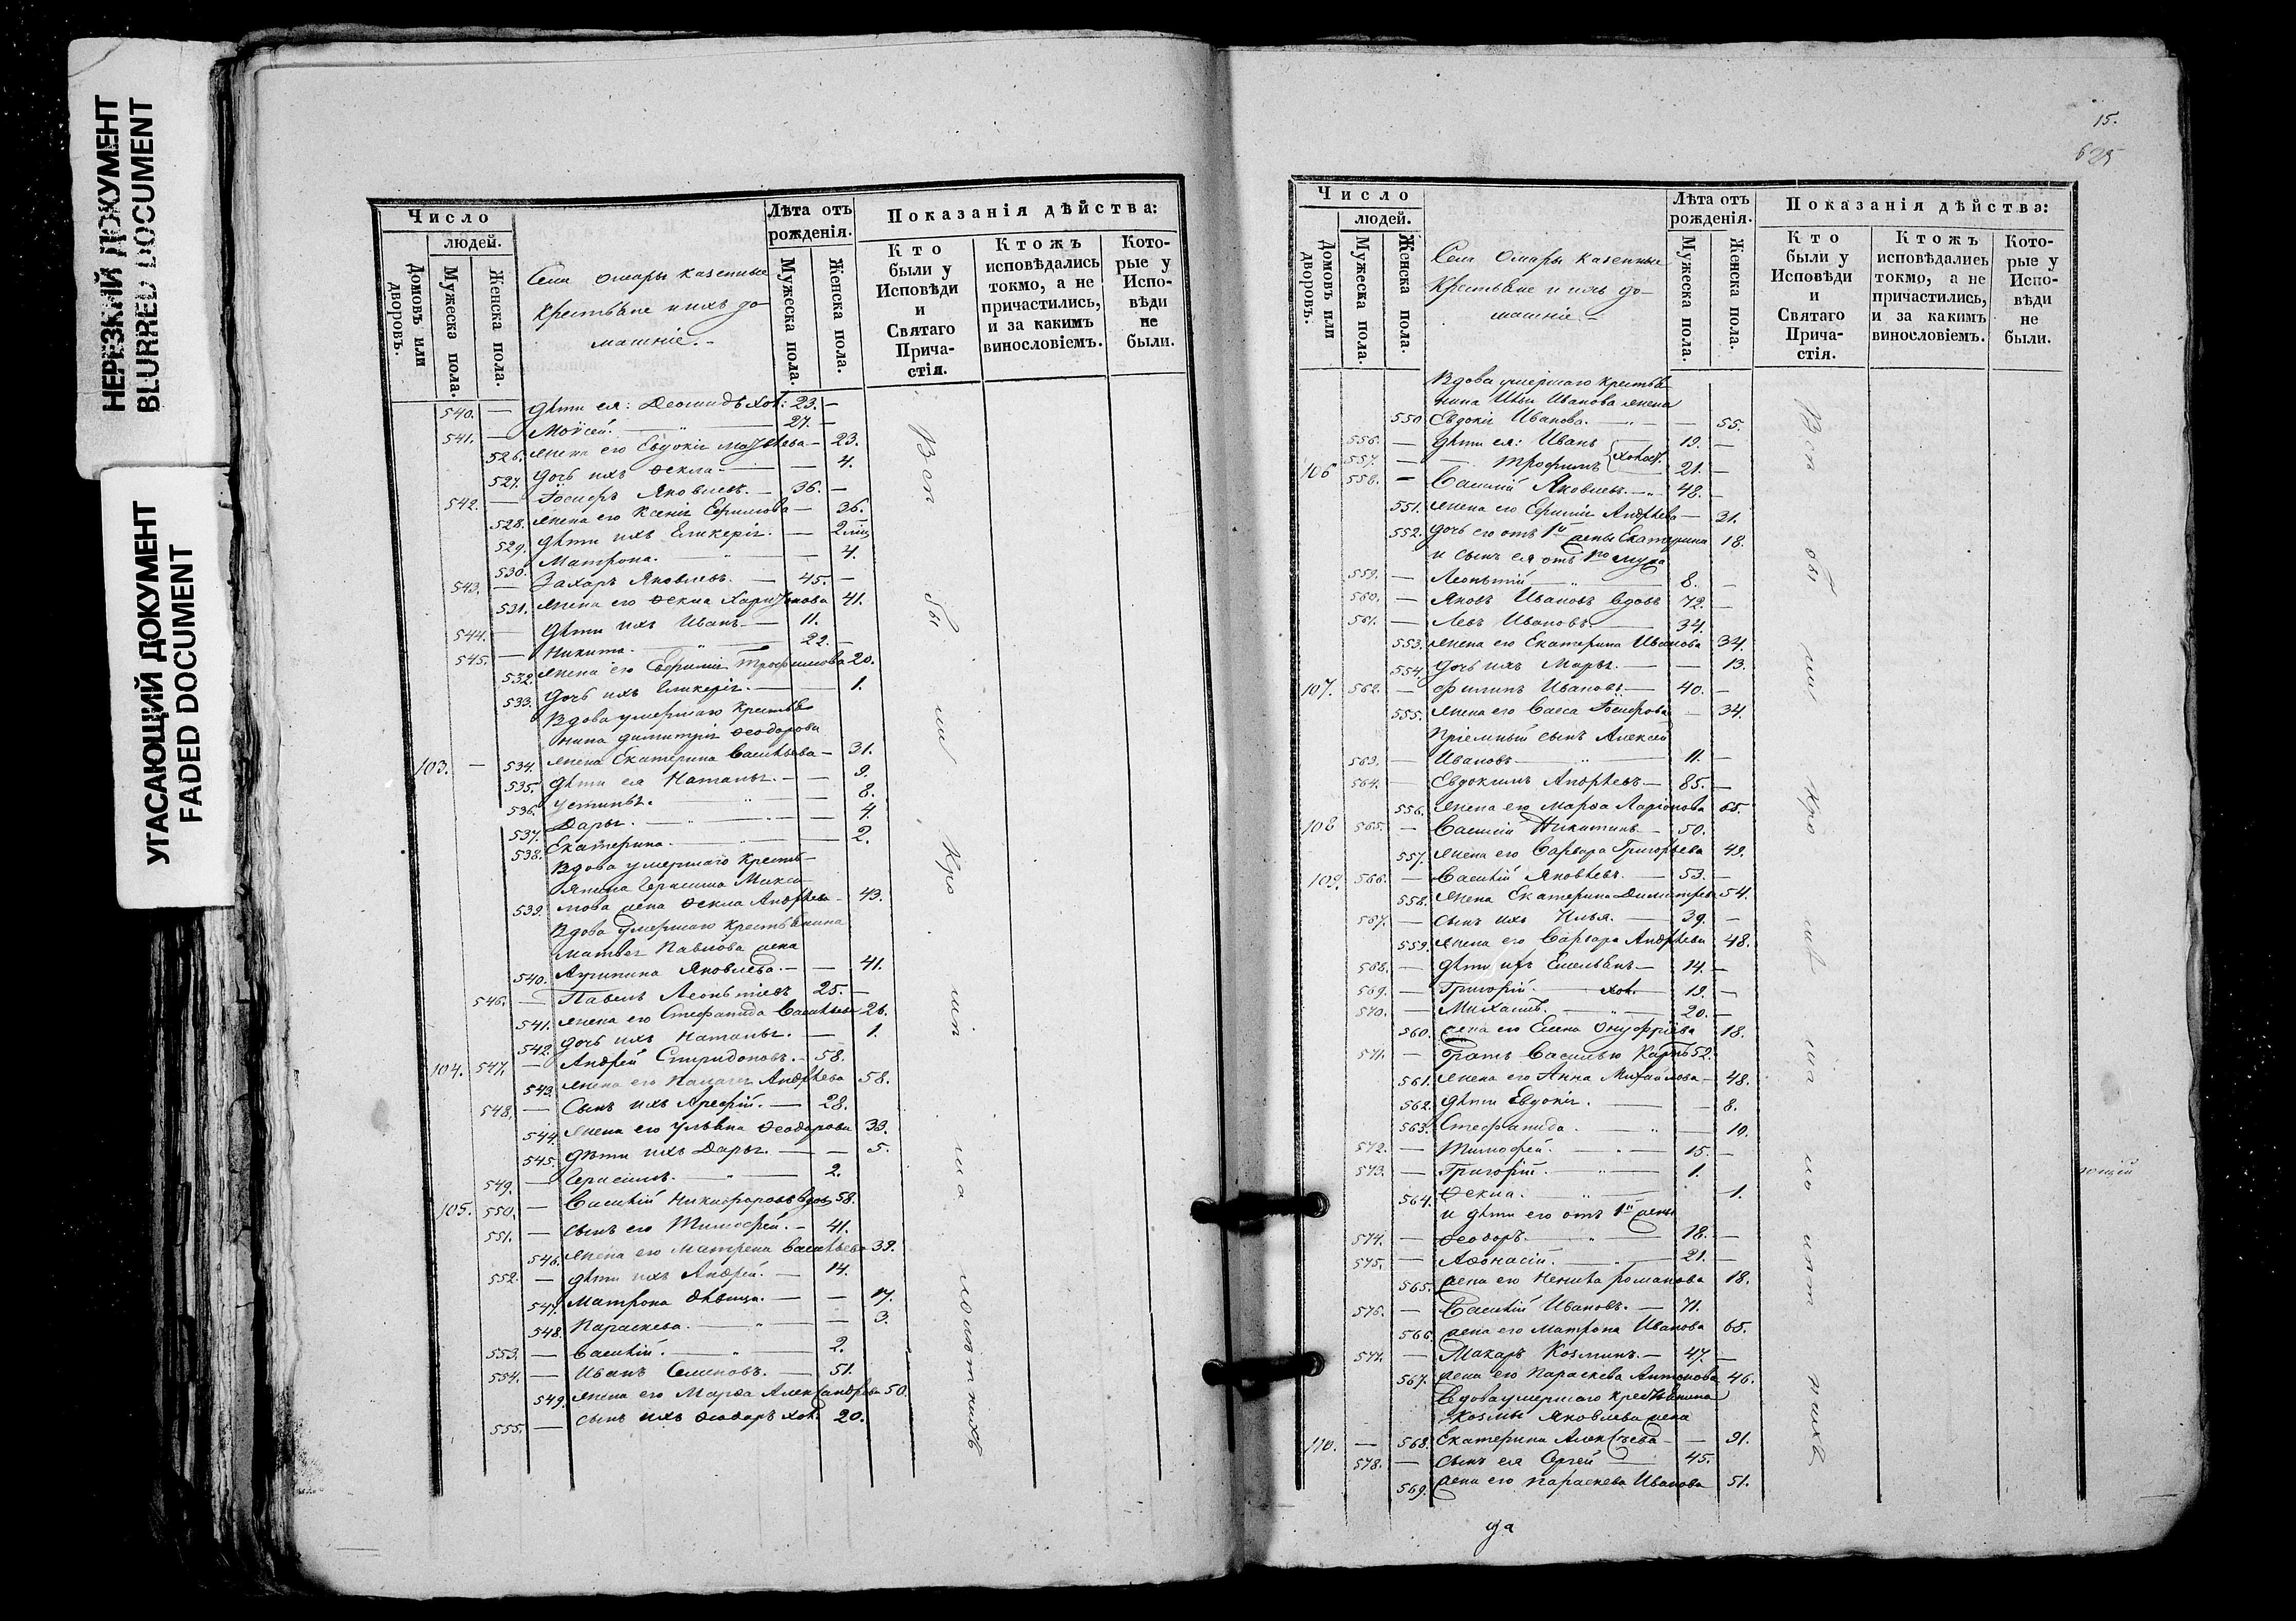 НЕРЕЗКИЙ ДОКУМЕНТ
BLURRED DOCUMENT
УГАСАЮЩИЙ ДОКУМЕНТ
FADED DOCUMENT
Число
людей.
Домовъ или дворовъ.
Мужеска пола.
Женска пола.
Села Омары казенные
крестьяне и ихъ до-
машніе.-
Лѣта отъ рожденія.
Мужеска пола.
Женска пола.
Показанія дѣйства:
Кто были у Исповѣди и Святаго Причастія.
Ктожъ исповѣдались токмо, а не причастились, и за какимъ винословіемъ.
Которые у Исповѣди не были.
540. — дѣти ея: Леонидъ хол: 23. —
541. — Моѵсей. — 27. —
526. жена его Евдокія Матвѣева — 23.
527. дочь ихъ Ѳекла — — 4.
542. — Іосифъ Яковлевъ. — 36. —
528. жена его Ксенія Ефимова — 36.
529. дѣти ихъ Гликерія. —
530. Матрона. — 4.
543. — Захаръ Яковлевъ. — 45. —
531. жена его Ѳекла Харитонова 41.
544. — дѣти ихъ Иванъ — 11.
545. — Никита. — 22. —
532. жена его Евфимія Трофимова 20.
533. дочь ихъ Гликерія. — 1.
Вдова умершаго крестья-
нина Димитрія Ѳеодорова
103. — 534. жена Екатерина Васильева — 31.
535. дѣти ея Наталья. — — 9.
536. Устинья. — 8.
537. Дарья. — 4.
538. Екатерина. — 2.
Вдова умершаго кресть-
янина Герасима Макси-
539. мова жена Ѳекла Андреева — 43.
Вдова умершаго крестьянина
Матвея Павлова жена
540. Агрипина Яковлева. — — 41.
546. — Павелъ Леонтіевъ 25. —
541. жена его Стефанида Васильева 26.
542. дочь ихъ Наталья. — 1.
104. 547. — Андрей Спиридоновъ. — 58.
543. жена его Палагея Андреева 58.
548. — Сынъ ихъ Арефій. — 28.
544. жена его Ульяна Ѳеодорова 33.
545. дѣти ихъ Дарья. — — 5.
549. — Герасимъ. — 2.
105. 550. — Василій Никифоровъ вдов. 58.
551. — сынъ его Тимофей. — 41.
546. жена его Матрена Васильева 39.
552. — дѣти ихъ Андрей. — 14.
547. Матрона дѣвица. — — 17.
548. Параскева. — 3.
553. — Василій. — 2.
554. — Иванъ Семеновъ. — 51.
549. жена его Марѳа Александрова 50.
555. — сынъ ихъ Ѳеодоръ хол. 20.
Всѣ были
15.
625
Число
людей.
Домовъ или дворовъ.
Мужеска пола.
Женска пола.
Села Омары казенные
Крестьяне и ихъ до-
машніе —
Лѣта отъ рожденія.
Мужеска пола.
Женска пола.
Показанія дѣйства:
Кто были у Исповѣди и Святаго Причастія.
Ктожъ исповѣдались токмо, а не причастились, и за какимъ винословіемъ.
Которые у Исповѣди не были.
Вдова умершаго крестья-
нина Ивана жена
550 Евдокія Иванова. — — 55.
556. — дѣти ея: Иванъ 19. —
557. — Трофимъ холос. 21. —
106 558. — Василій Яковлевъ. — 48. —
551. жена его Ефимія Андреева — 31.
552. дочь его отъ 1й жены Екатерина 18.
и сынъ ея отъ 1го мужа
559. — Леонтій — 8. —
560. — Яковъ Ивановъ вдовъ 72. —
561. — Левъ Ивановъ. — 34.
553. жена его Екатерина Иванова 34.
554. дочь ихъ Марья. — — 13.
107. 562. — Филипъ Ивановъ — 40. —
555. жена его Іосифова — 34.
Пріемный сынъ Алексей
563. — Ивановъ — 11. —
564. — Евдокимъ Андреевъ — 85. —
556. жена его Марѳа Ларіонова 65.
108 565. — Василій Никитинъ. — 50.
557. жена его Варвара Григорьева 49.
109. 566. — Василій Яковлевъ. — 53. —
558. жена Екатерина Димитрева 54.
567. — сынъ ихъ Илья. — 39. —
559. жена его Варвара Андреева 48.
568. — дѣти ихъ Емельянъ — 14. —
569. — Григорій. хол. — 19. —
570. — Михаилъ. — 20. —
560. жена его Елена Онуфріева 18.
571. — братъ Василью Карпъ 52.
561. жена его Анна Михайлова — 48.
562. дѣти Евдокія. — — 8.
563. Стефанида. — 10.
572. — Тимофей. — 15. —
573. — Григорій. — 1.
564. Ѳекла. — 1.
и дѣти его отъ 1й жены
574. — Ѳеодоръ. — 18. —
575. — Аѳонасій. — 21. —
565. жена его Романова 18.
576. — Василій Ивановъ. — 71.
566. жена его Матрона Иванова 65.
577. — Макаръ Козминъ. — 47. —
567. жена его Параскева Антонова 46.
Вдова умершаго крестьянина
Козмы Яковлева жена
110. — 568. Екатерина Алексѣева — — 91.
578. — сынъ ея Сергей — 45.
569. жена его Параскева Иванова 51.
Всѣ были